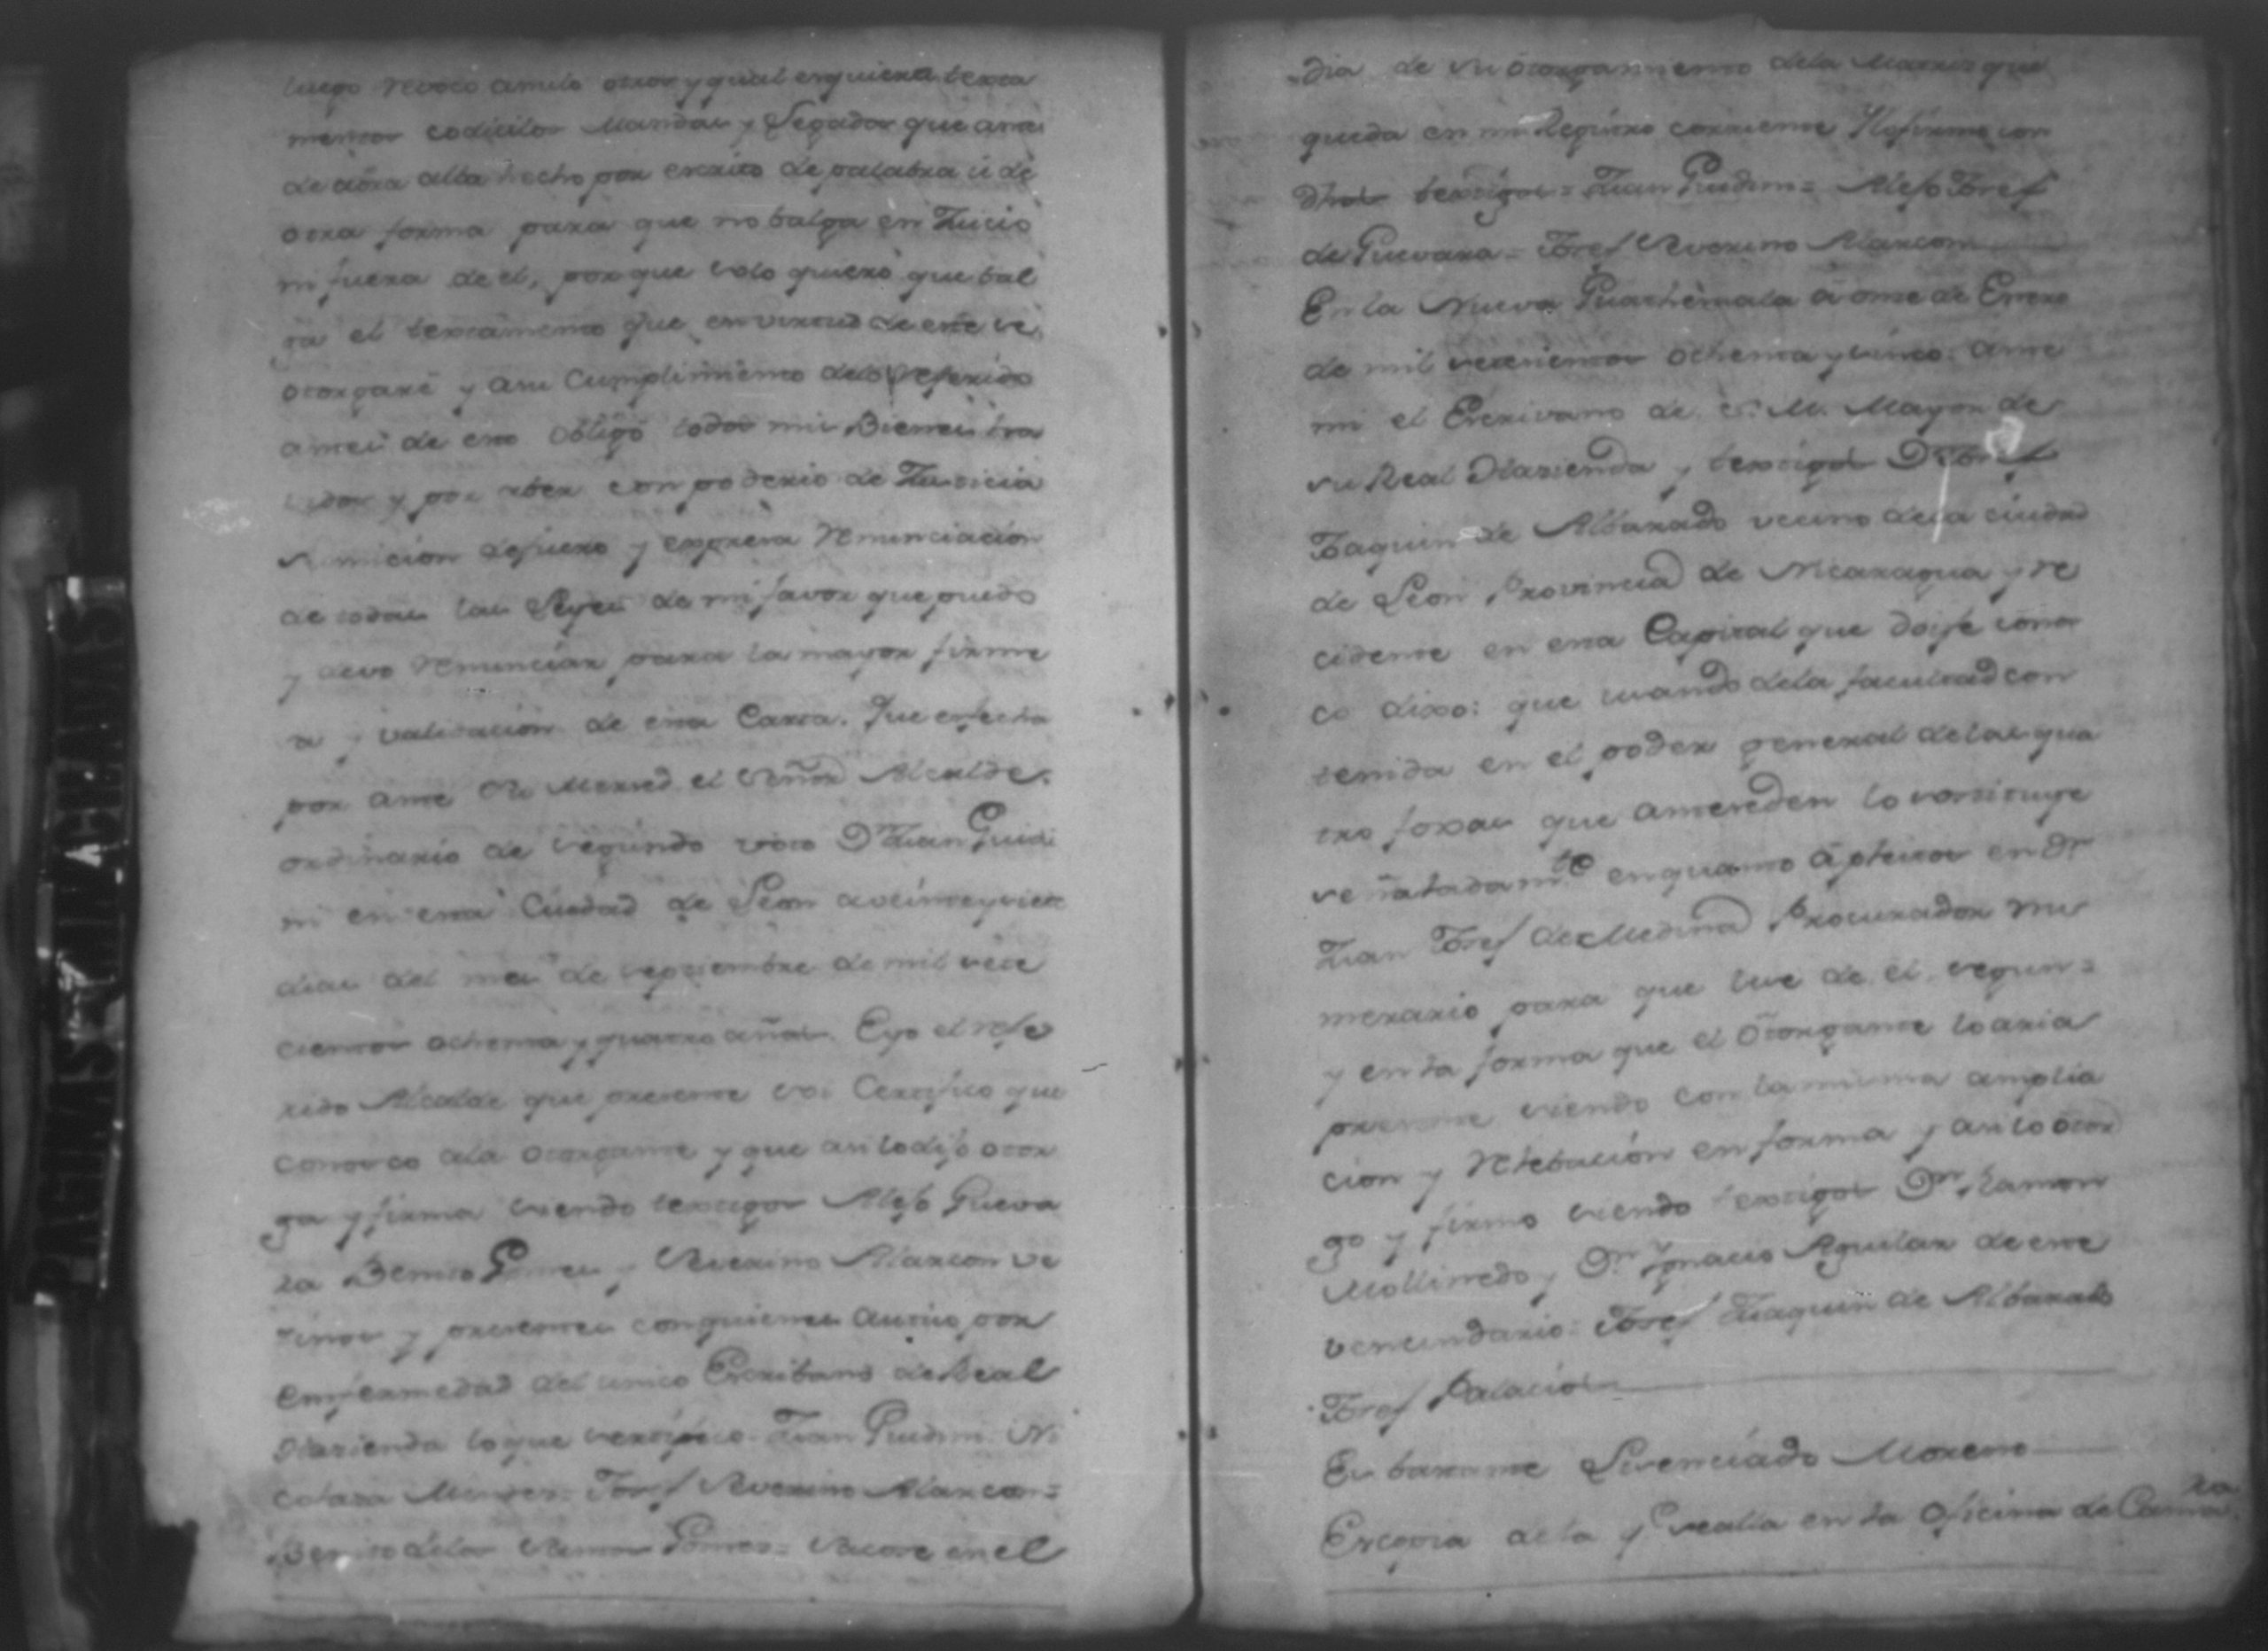 luego reboco anulo otros y qualesquiera testa
mentos codicilos Mandas y Legados que antes
de aora alla hecho por escrito de palabra ú de
otra forma para que no balga en Juicio
ni fuera de el, porque solo quiero que bal
ga el testamento que en virtud de este se
otorgare y asu Cumplimiento delo referido
antes de esto obligo todos mis Bienes ha
vidos y por aber con poderio de Justicia
sumicion defuero y expresa renunciacion
de todas las Leyes de mi favor que puedo
y devo renunciar para la mayor firme
za y validacion de esta Carta. Que es fecha
por ante Su Merced el Señor Alcalde
ordinario de segundo voto Dn Juan Guidi
ni en esta Ciudad de León a veinte y siete
dias del mes de septiembre de mil sete
cientos ochenta y quatro años. E yo el refe
rido Alcalde que presente soi Certifico que
conosco ala otorgante y que asi lo dijo otor
ga y firma siendo testigos Alejo Gueva
ra Benito Gomes y Severino Alarcon ve
zinos y presentes con quienes autúo por
enfermedad del unico Escribano de Real
Hazienda lo que sertifico. Juan Guidini. Ni
colasa Josef Severino Alarcon =
Benito delos Santos Gomes = Sacose en el
dia de su otorgamiento dela Matris que
queda en mi Registro corriente Y lo firmo con
dhos testigos = Juan Guidini = Alejo Josef
de Guevara = Josef Severino Alarcon
En la Nueva Guathemala á onse de Enero
de mil setesientos ochenta y sinco: ante
mi el Escrivano de S. M. Mayor de
su Real Hazienda y testigos Dn Josef
Joaquin de Albarado vecino dela ciudad
de Leon Provincia de Nicaragua y re
cidente en esta Capital que doi fe cono
co dixo: que usando dela facultad con
tenida en el poder general delas qua
tro foxas que anteseden lo sostituye
señaladamte en quanto á pleitos en Dn
Juan Josef de Medina Procurador Nu
merario para que use de el segun =
y en la forma que el otorgante lo aria
presente siendo con la misma amplia
cion y relebacion en forma y asi lo otor
gó y firmo siendo testigos Dn Ramon
Mollinedo y Dn Ygnacio Aguilar de este
vencindario: Josef Juaquin de Albarado
Josef Palacios
Es bastante Lisenciado Moreno
Es copia dela qe se alla en la Oficina de Cama
ra